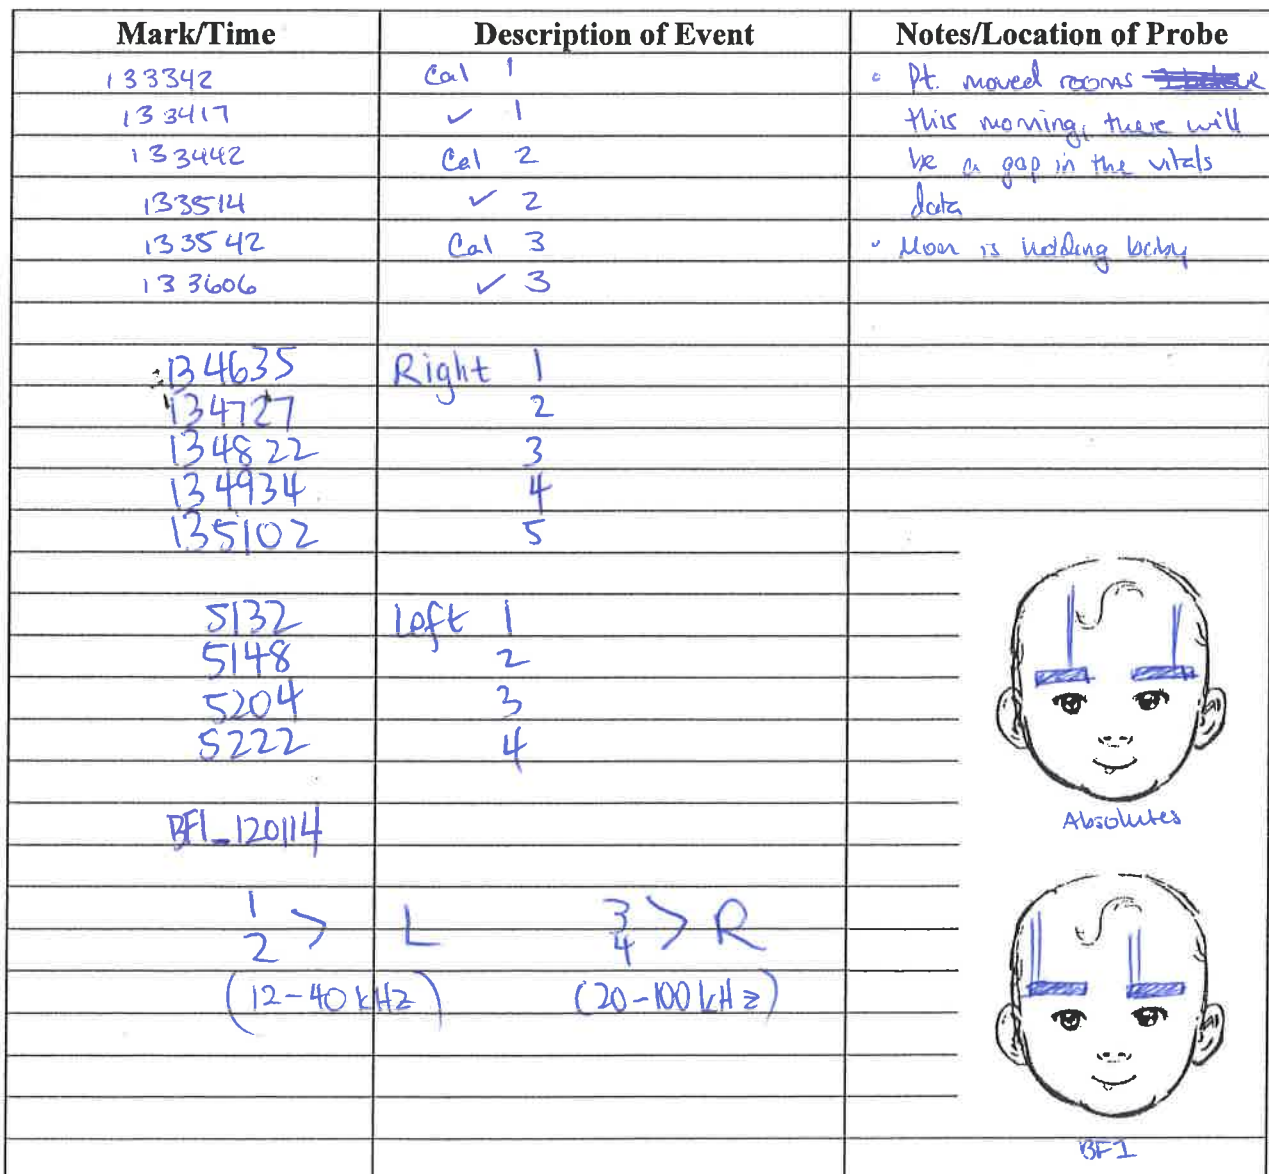 Mark/Time Description of Event Notes/Location of Probe
133342 Cal 1 Pt. moved rooms
133417 ✓ 1 this morning, there will
133442 Cal 2 be a gap in the vitals
133514 ✓ 2 data
133542 Cal 3 Mom is holding baby
133606 ✓ 3
134635 Right 1
134727 2
134822 3
134934 4
135102 5
5132 Left 1
5148 2
5204 3
5222 4
Absolutes
BFI_120114
1
2 > L 3
4 > R
(12-40 kHz) (20-100 kHz)
BFI